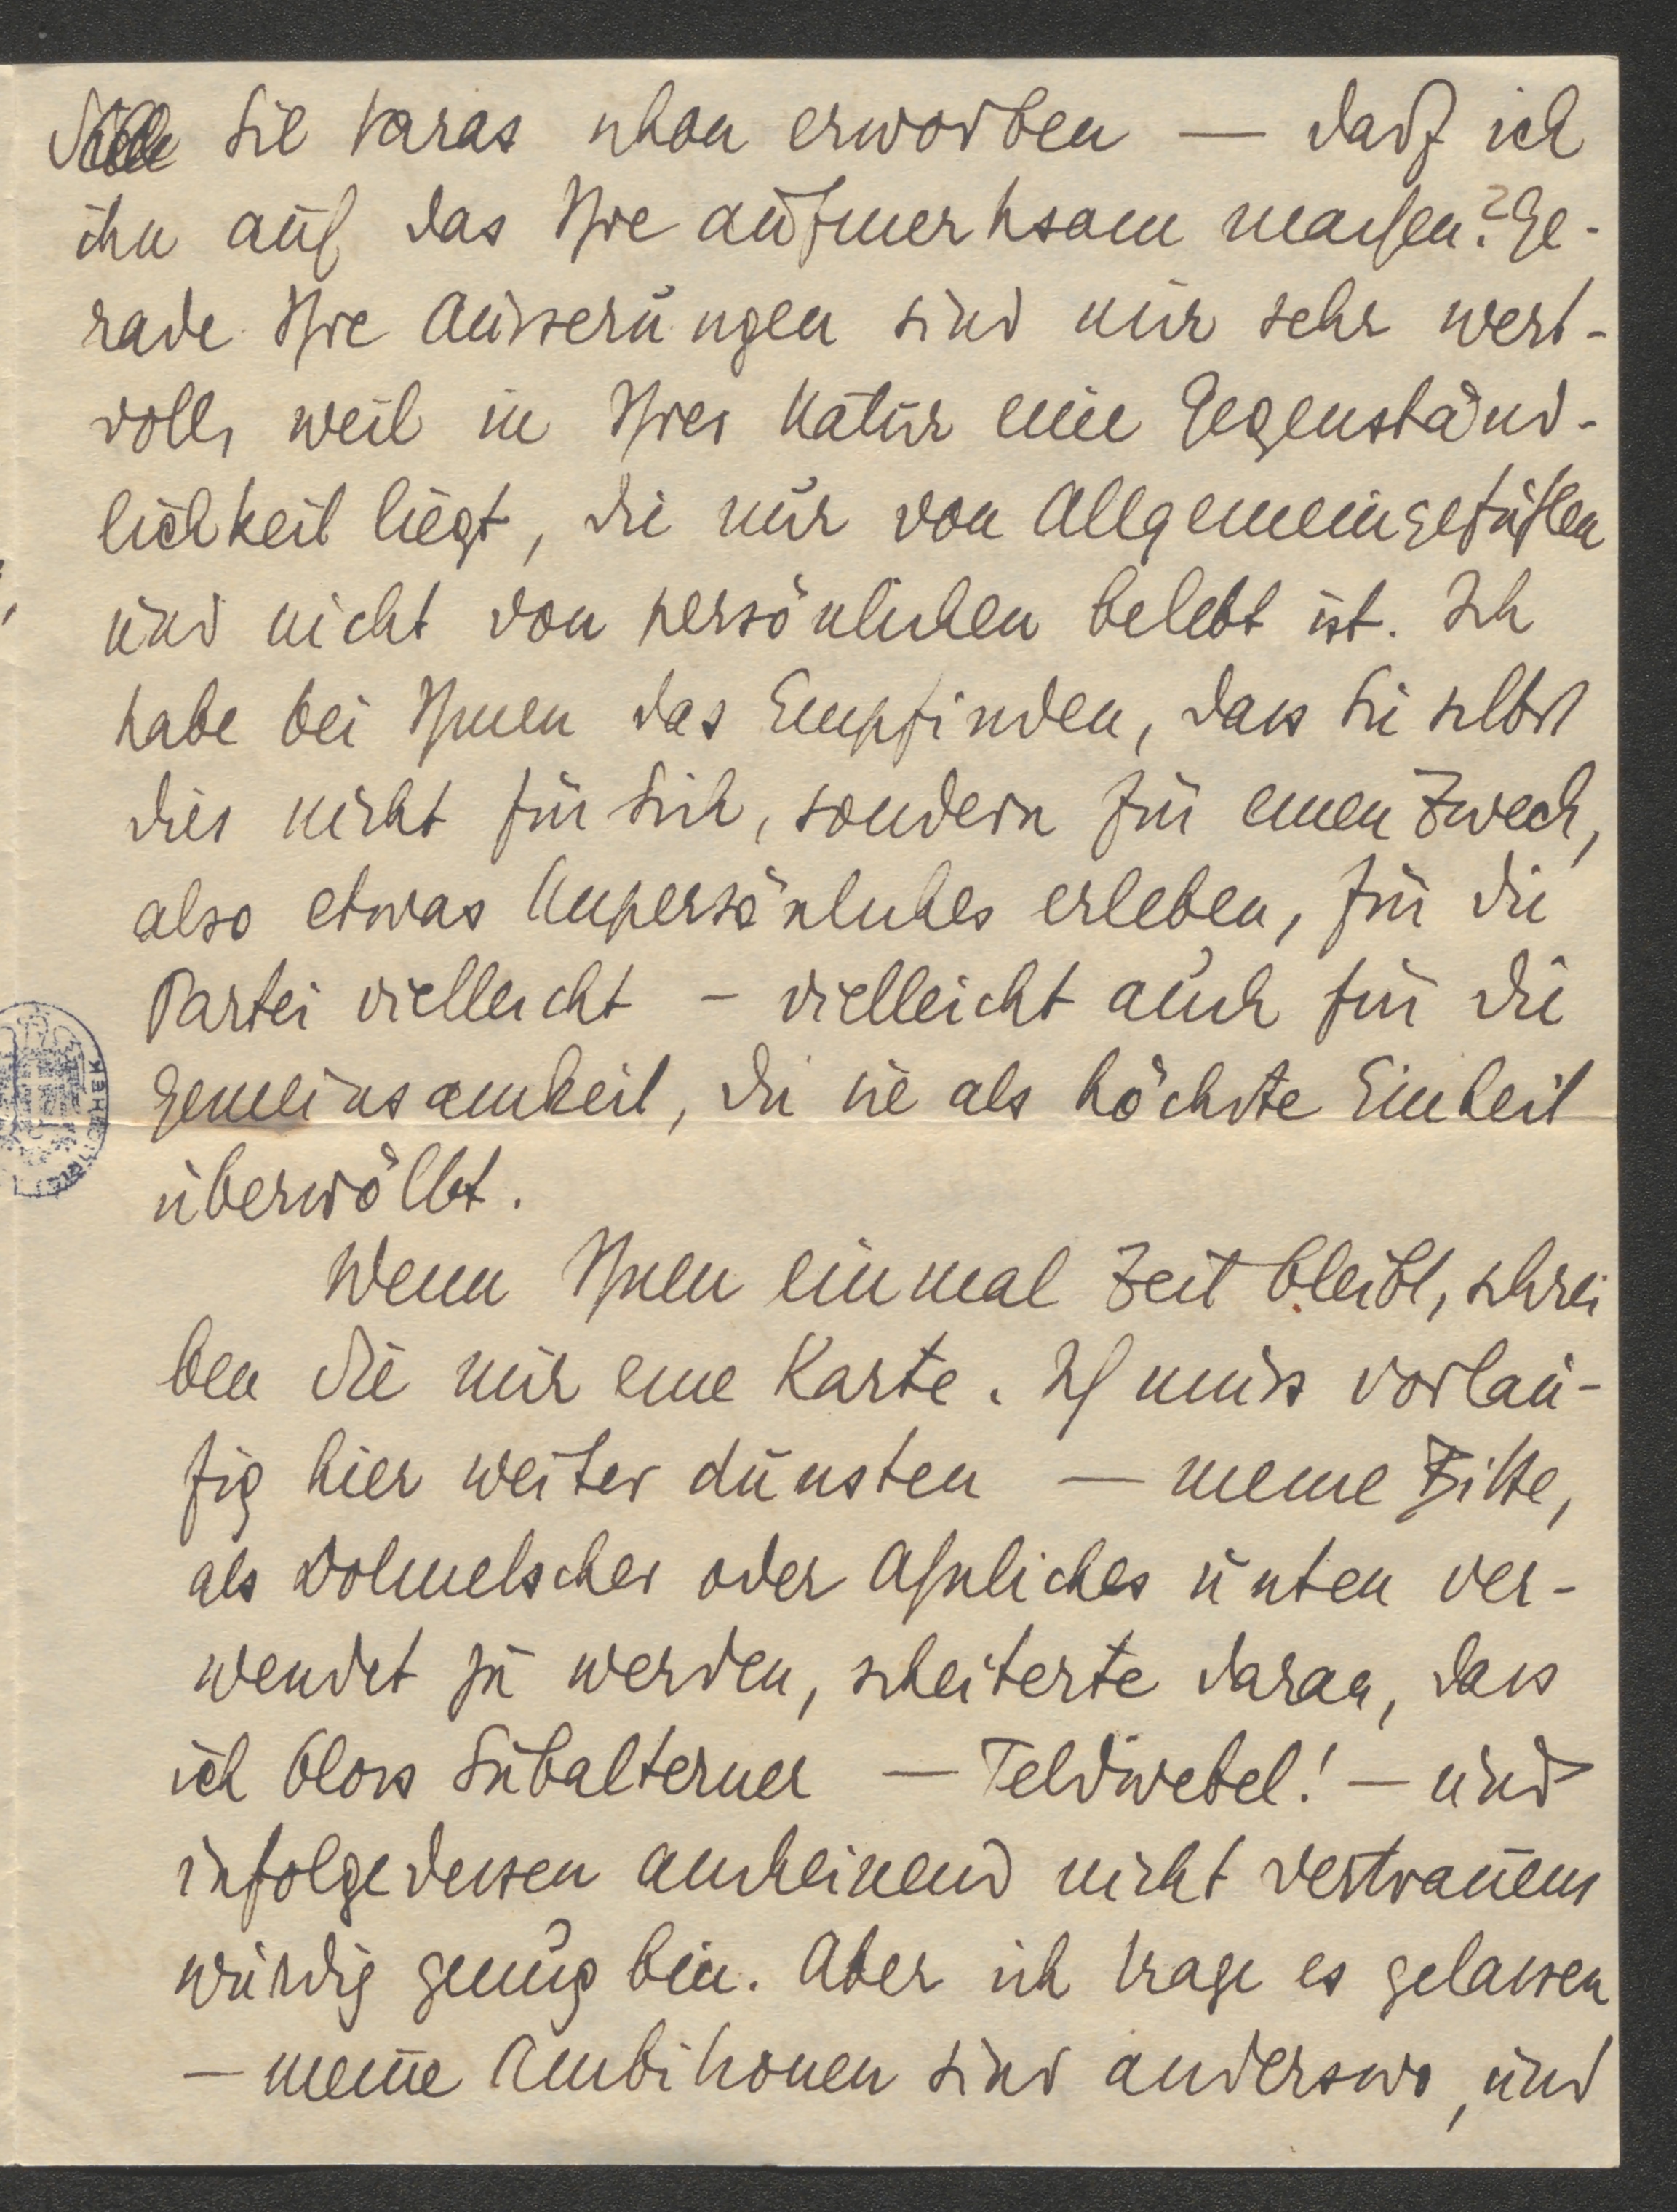 Sie Karas schon erworben — darf ich
ihn auf das Ihre aufmerksam machen? Ge-
rade Ihre Äusserungen sind mir sehr wert-
voll, weil in Ihrer Natur eine Gegenständ-
lichkeit liegt, die nur von Allgemeingefühlen
und nicht von persönlichen belebt ist. Ich
habe bei Ihnen das Empfinden, dass Sie selbst
dies nicht für Sich, sondern für einen Zweck,
also etwas Unpersönliches erleben, für die
Partei vielleicht – vielleicht auch für die
Gemeinsamkeit, die sie als höchste Einheit
überwölbt.
Wenn Ihnen einmal Zeit bleibt, schrei
ben Sie mir eine Karte. Ich muss vorläu-
fig hier weiter dunsten — meine Bitte,
als Dolmetscher oder Ähnliches unten ver-
wendet zu werden, scheiterte daran, dass
ich bloss Subalterner — Feldwebel! — und
infolgedessen anscheinend nicht vertrauens
würdig genug bin. Aber ich trage es gelassen
— meine Ambitionen sind anderswo, und